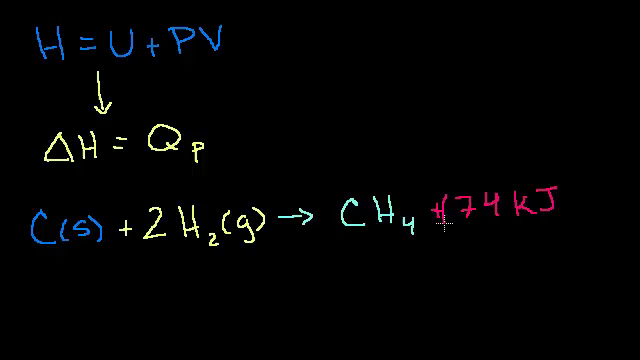 H = U + PV
↓
ΔH = Q_P
C(s) + 2H₂(g) → CH₄ + 74 kJ